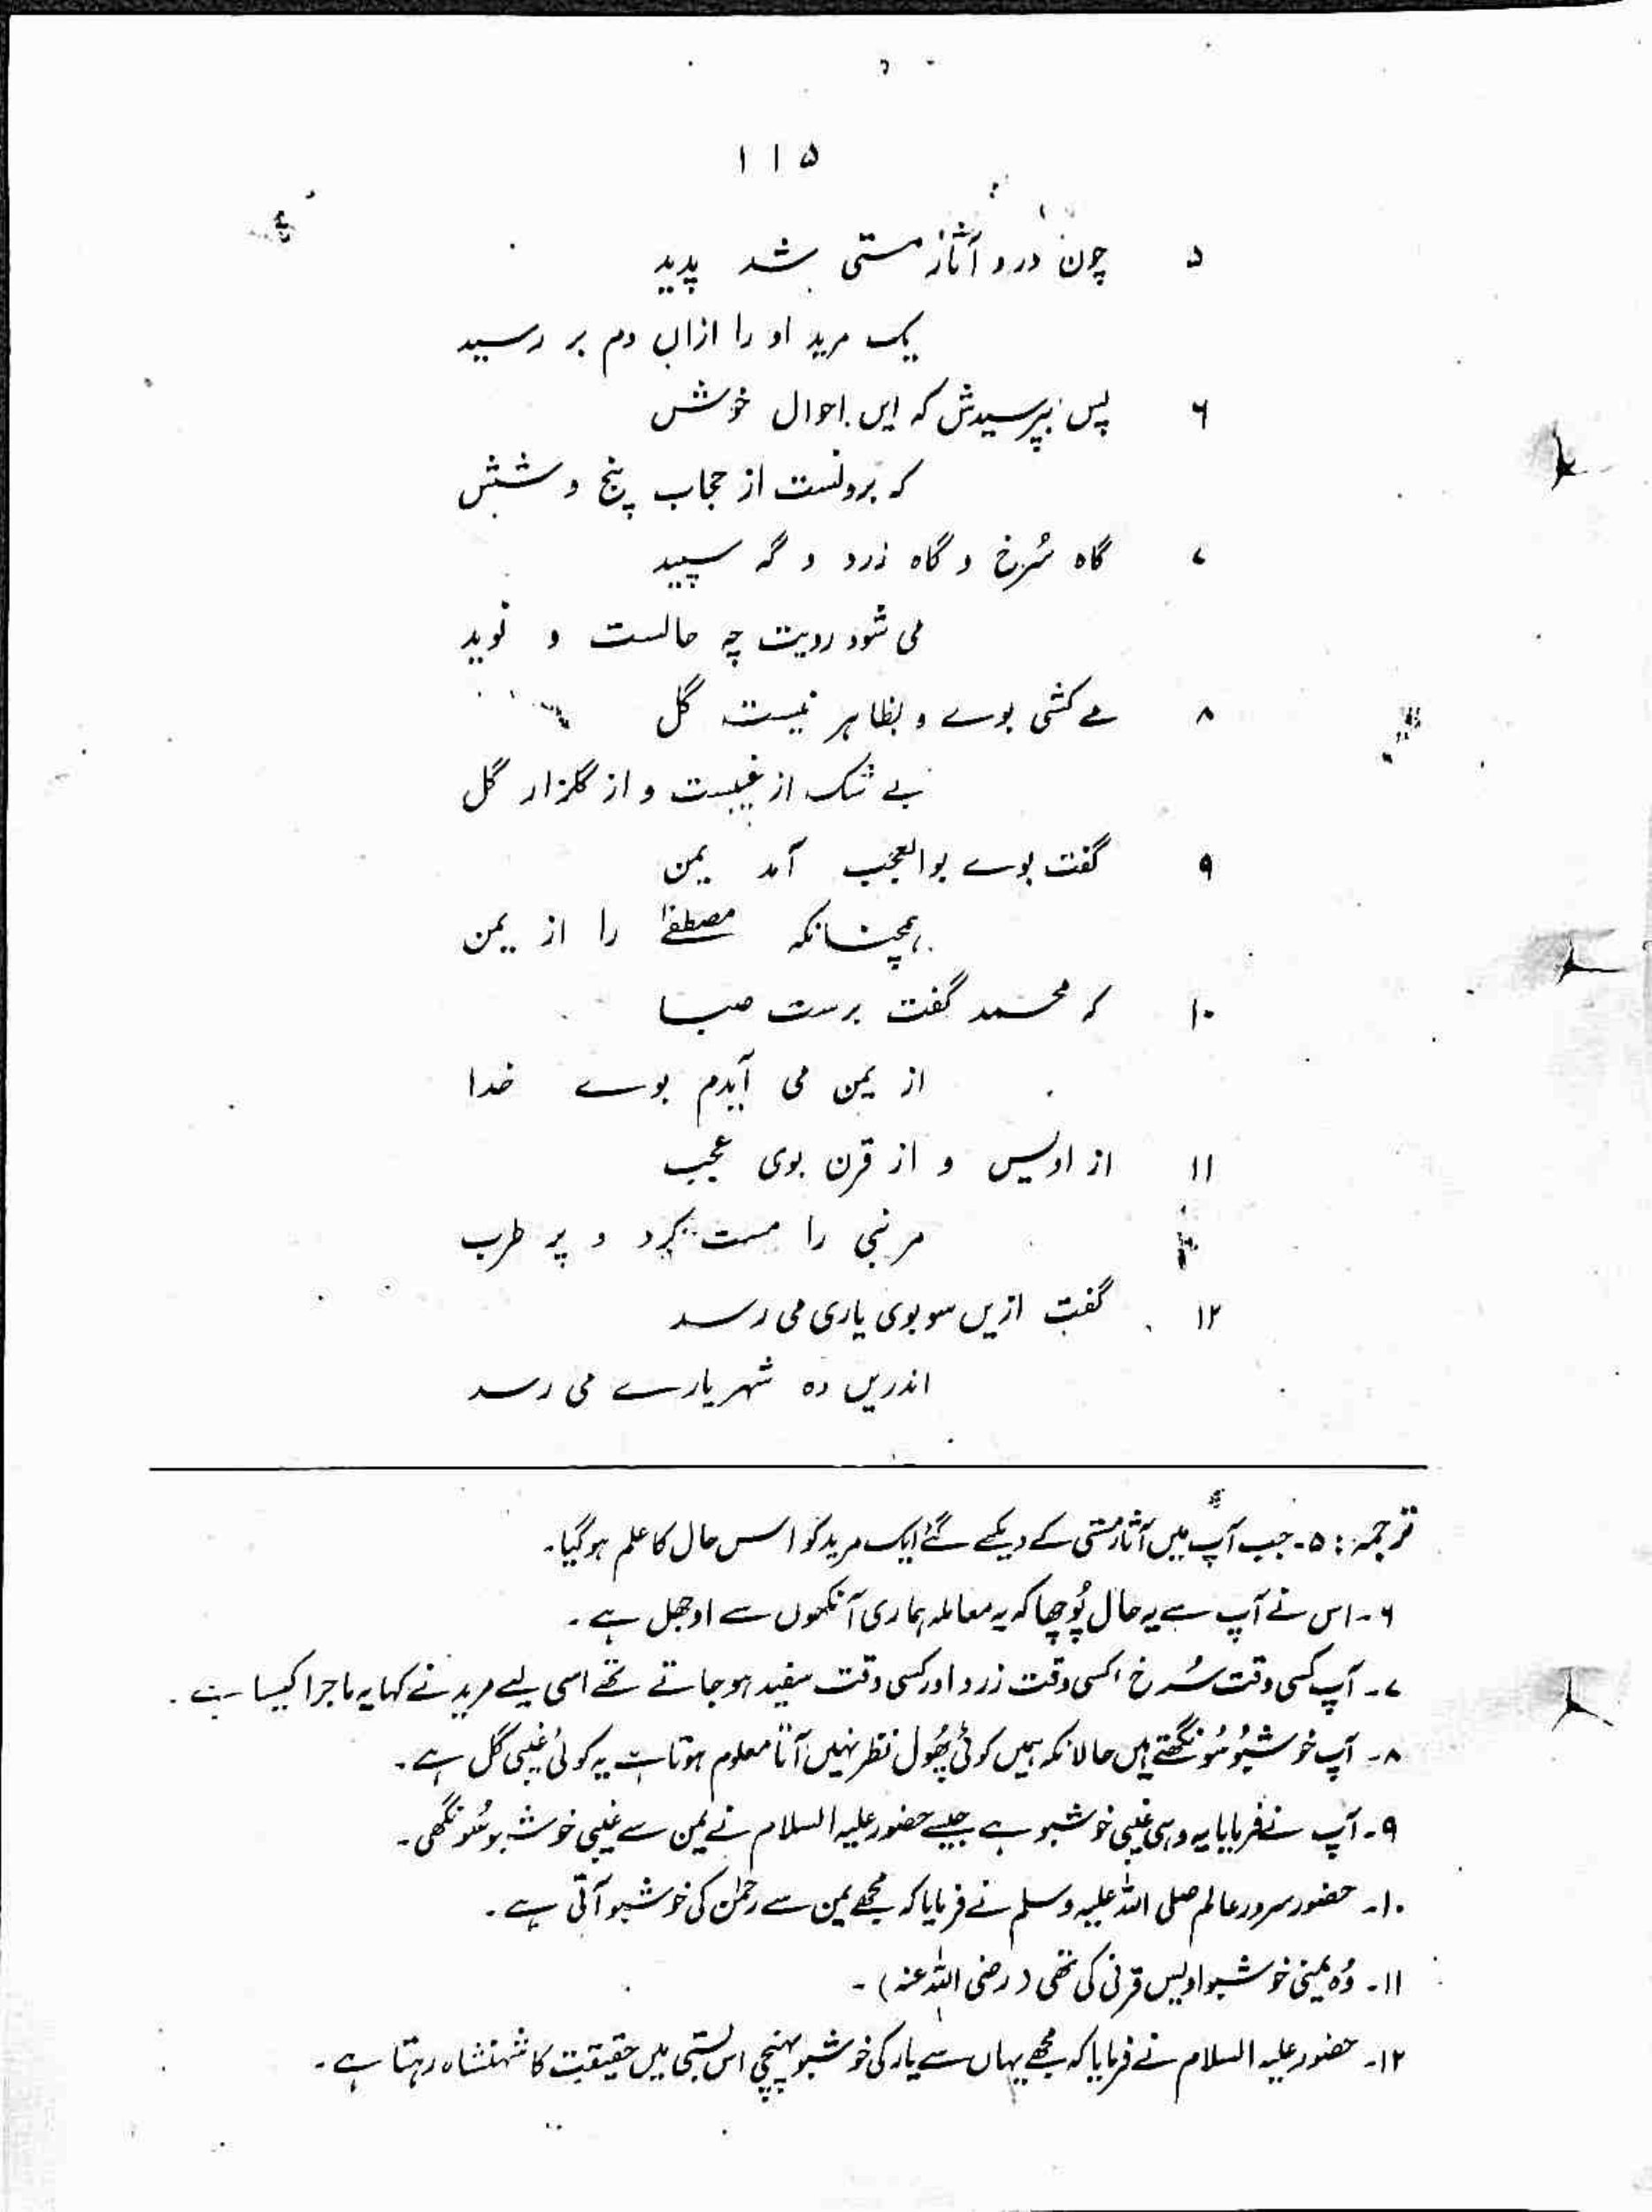 ۱۱۵
۵ چون درو آثار مستی شد پدید
یک مرید او را ازاں دم بر رسید
۶ پس بپرسیدش کہ ایں احوال خوش
کہ برونست از حجاب پنج و شش
۷ گاہ سُرخ و گاہ زرد و گہ سپید
می شود رویت چہ حالست و نوید
۸ مے کشی بوے و بظاہر نیست گل
بے شک از غیبست و از گلزار گل
۹ گفت بوے بوالعجب آمد بمن
ہمچنانکہ مصطفےٰ را از یمن
۱۰ کہ محمد گفت بر ست صبا
از یمن می آیدم بوے خدا
۱۱ از اویس و از قرن بوی عجب
مر نبی را مست کرد و پر طرب
۱۲ گفت ازیں سو بوی یاری می رسد
اندریں دہ شہریارے می رسد
ترجمہ: ۵۔ جب آپ میں آثار مستی کے دیکھے گئے ایک مرید کو اس حال کا علم ہوگیا۔
۶۔ اس نے آپ سے یہ حال پُوچھا کہ یہ معاملہ ہماری آنکھوں سے اوجھل ہے۔
۷۔ آپ کسی وقت سُرخ، کسی وقت زرد اور کسی وقت سفید ہو جاتے تھے اسی لیے مرید نے کہا یہ ماجرا کیسا ہے۔
۸۔ آپ خوشبُو سُونگھتے ہیں حالانکہ ہمیں کوئی پھُول نظر نہیں آتا معلوم ہوتا ہے یہ کوئی غیبی گل ہے۔
۹۔ آپ نے فرمایا یہ وہی غیبی خوشبو ہے جیسے حضور علیہ السلام نے یمن سے غیبی خوشبو سُونگھی۔
۱۰۔ حضور سرور عالم صلی اللہ علیہ وسلم نے فرمایا کہ مجھے یمن سے رحمٰن کی خوشبو آتی ہے۔
۱۱۔ وُہ یمنی خوشبو اویس قرنی کی تھی (رضی اللہ عنہ)۔
۱۲۔ حضور علیہ السلام نے فرمایا کہ مجھے یہاں سے یار کی خوشبو پہنچی اس بستی میں حقیقت کا شہنشاہ رہتا ہے۔